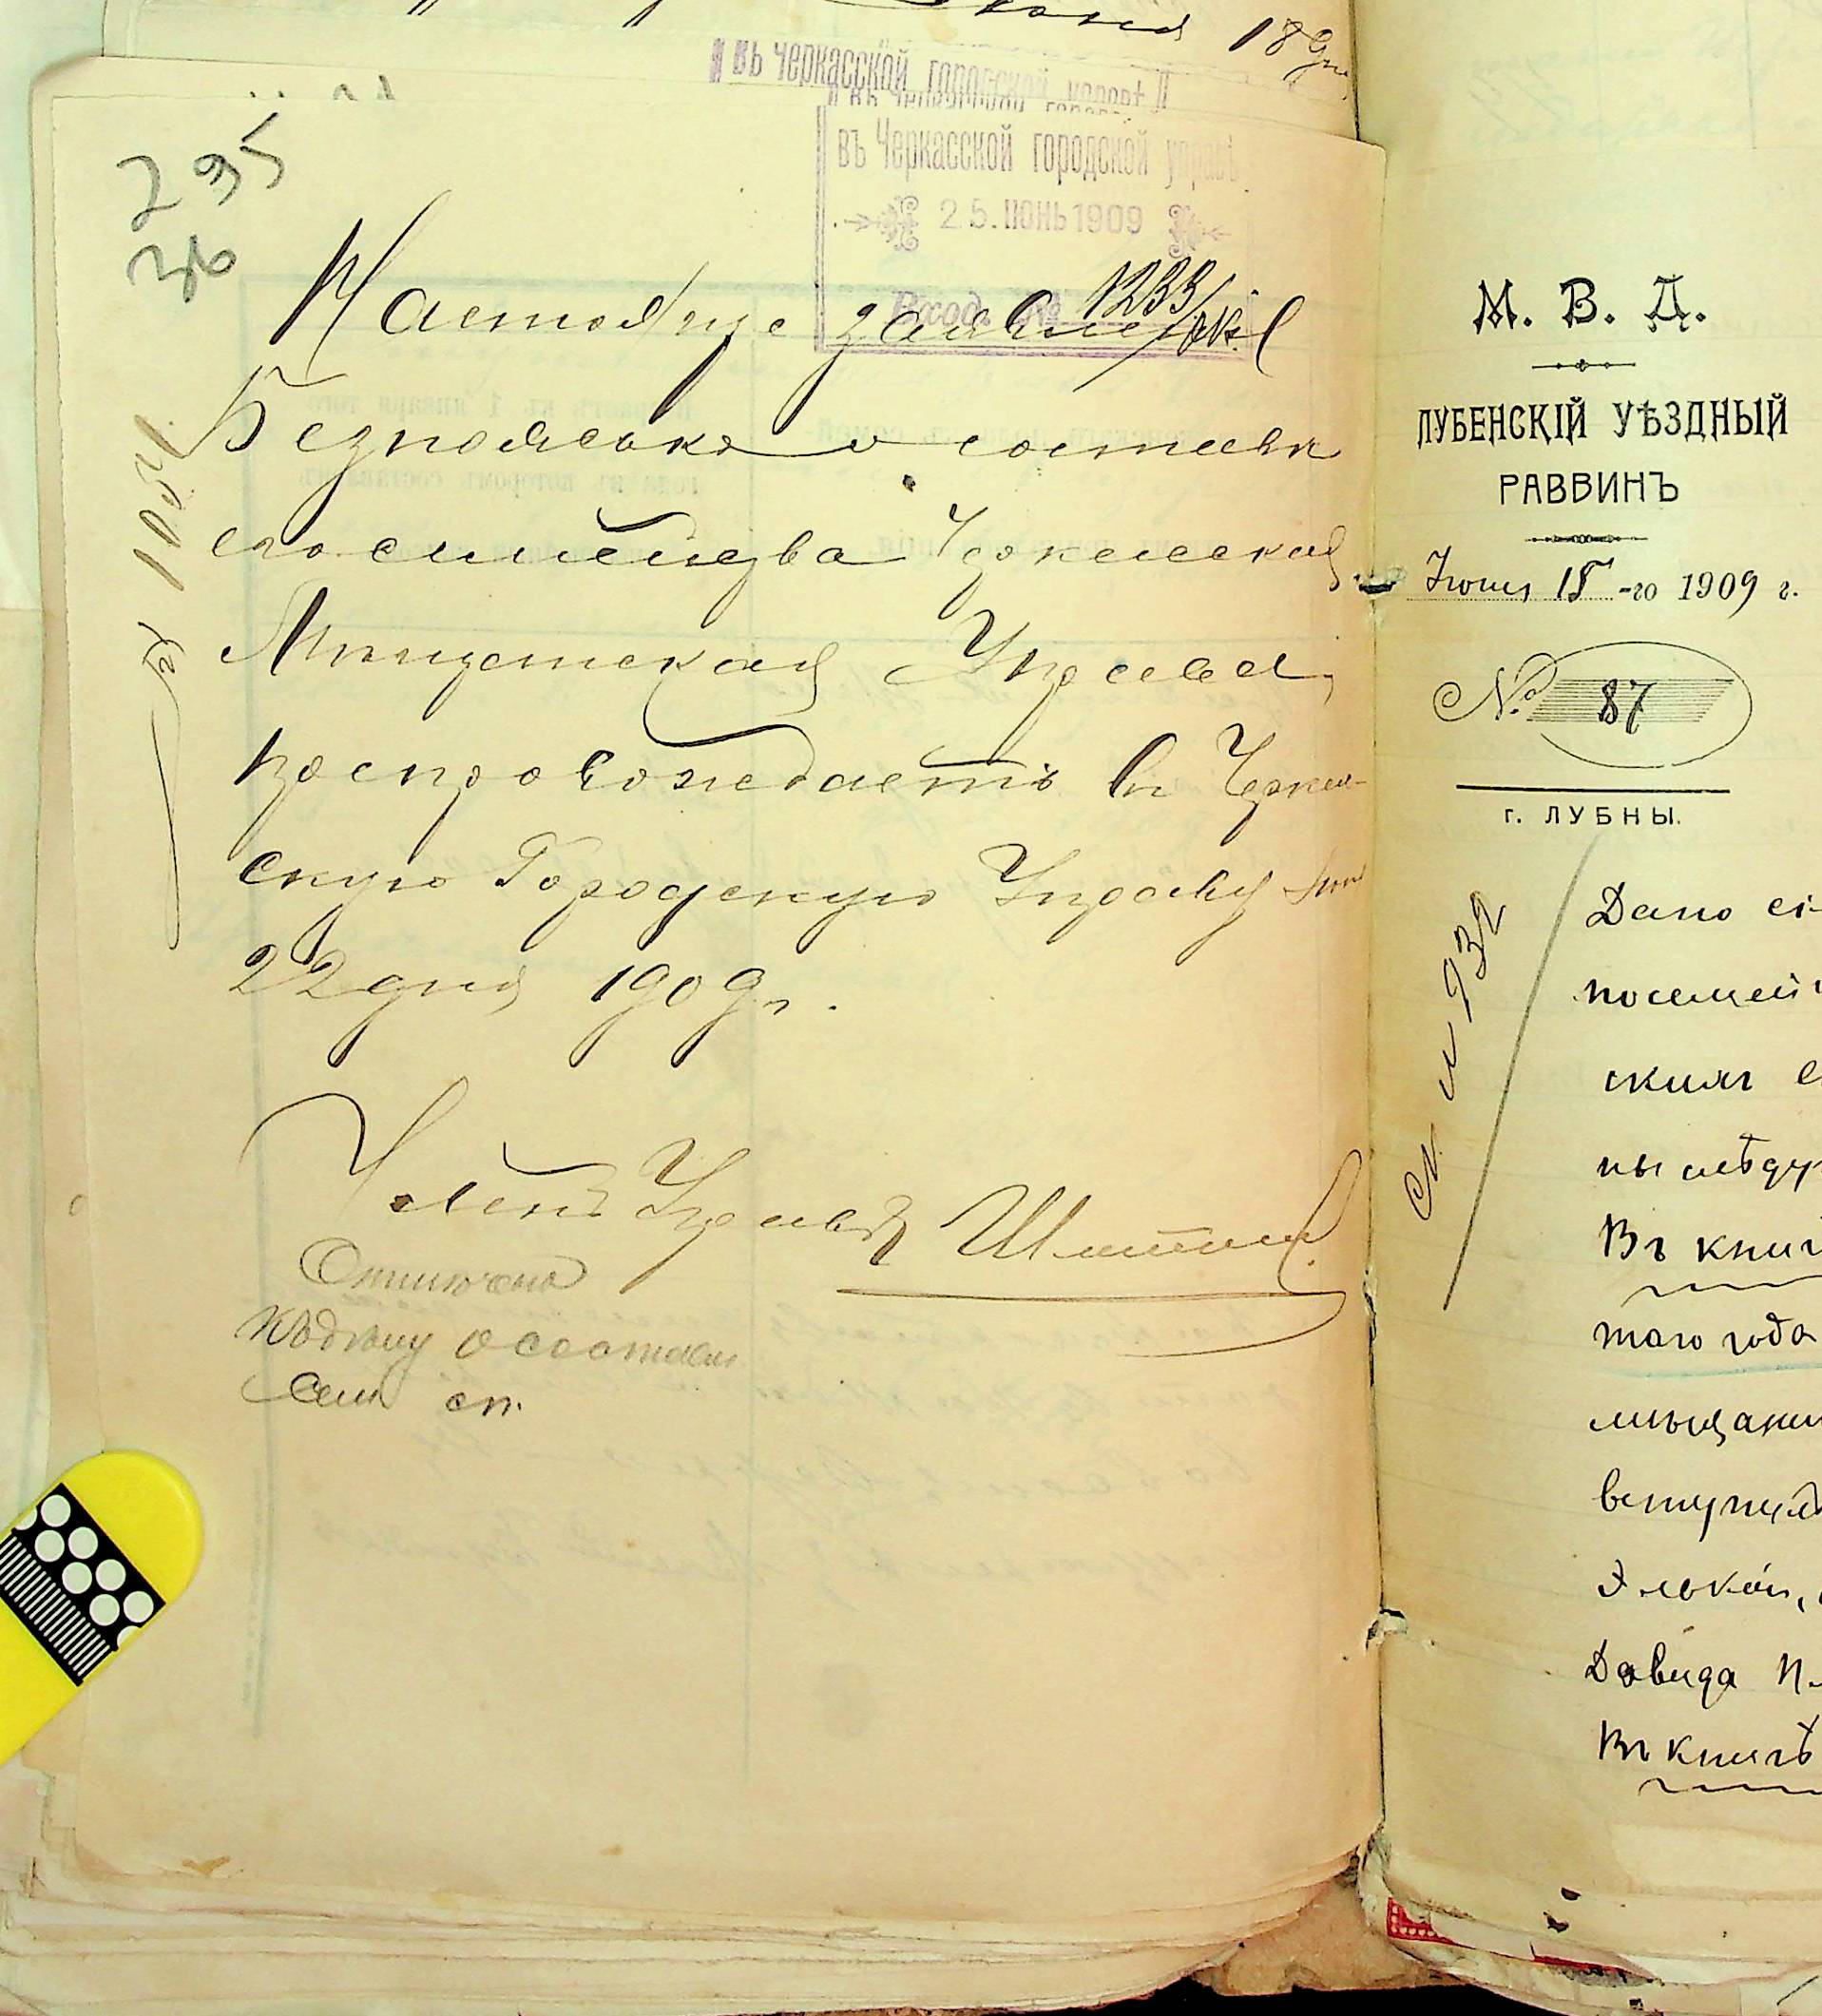 18 9 г.
въ Черкасской городской управѣ
въ Черкасской городской управѣ
25. ІЮНЬ 1909
Вход. №
1233
295
36
Настоящее заявленіе
Безпоясько о составѣ
его семейства Черкасская
Мѣщанская Управа,
препровождаетъ въ Черкас-
скую Городскую Управу Іюня
22 дня 1909 г.
Членъ Управы
Отношеніе
о составѣ
Сем. сп.
М. В. Д.
ЛУБЕНСКІЙ УѢЗДНЫЙ
РАВВИНЪ
Іюня 15-го 1909 г.
№ 87
г. ЛУБНЫ.
932
Дано сі
посемей
скимъ
ны слѣду
Въ книг
того года
мѣщани
вступил
Элькой,
Довида
Въ книгѣ